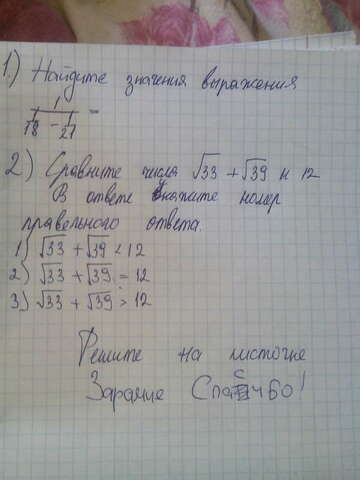 1.) Найдите значения выражения
1
1/18 - 1/21 =
2.) Сравните числа √33 + √39 и 12
В ответе укажите номер
правельного ответа.
1) √33 + √39 < 12
2) √33 + √39 = 12
3) √33 + √39 > 12
Решите на листочке
Зарание Спасибо!